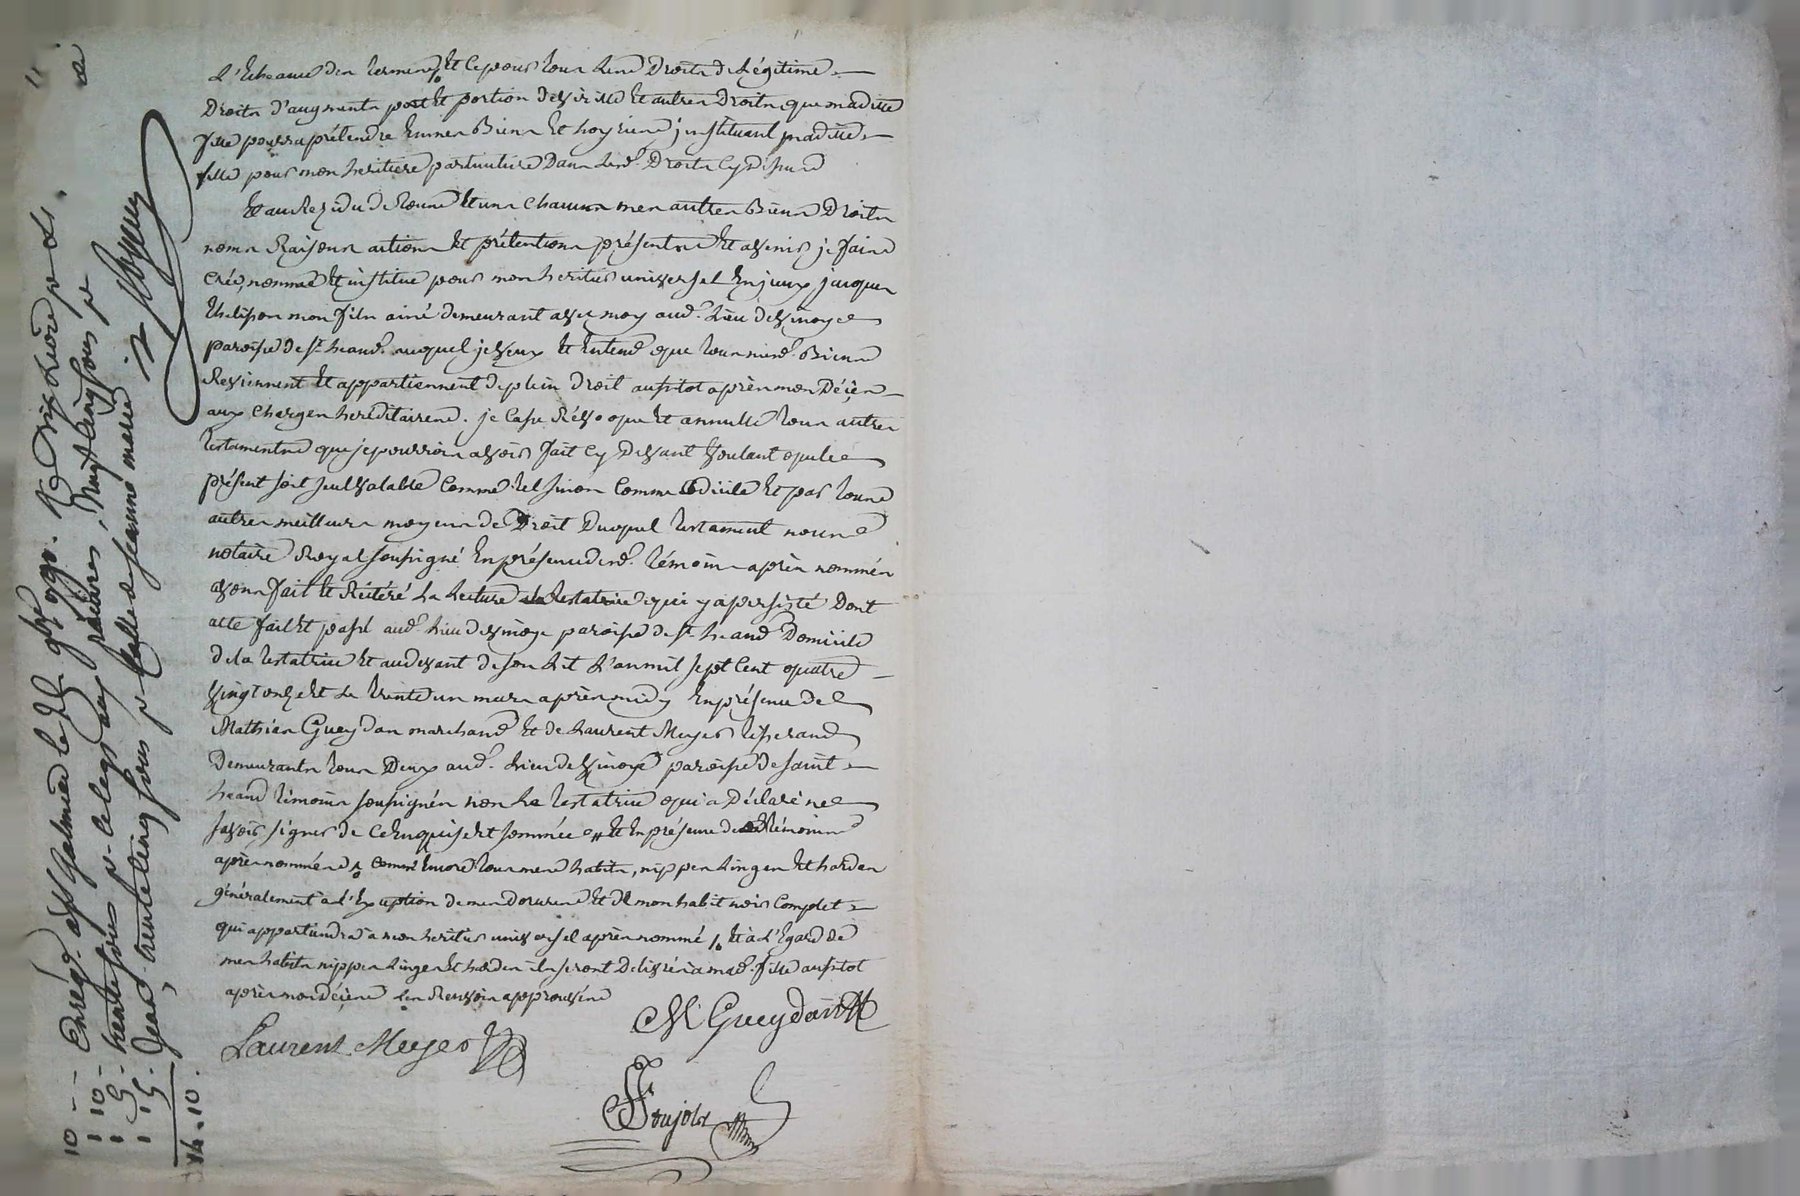 L'Echeance des termes, Et ce pour tous Ses Droits de Légitime
Droits d'augments part Et portion de virille Et autres Droits que maditte
fille pourra prétendre En mes Biens Et hoyries jnstituant maditte
fille pour mon heritiere particuliere Dans Sesd. Droits Cy dessus
Et au Rezidu de tous Et uns Chacuns mes autres Biens Droits
noms Raisons actions Et prétentions présents Et avenir je fais
Créé, nomme Et institue pour mon heritier universel jacques
thelisson mon fils ainé demeurant avec moy aud. Lieu de
paroisse de St. heand. auquel je Veux Et Entend que tous mesd. Biens
Reviennent Et appartiennent de plein Droit aussitot après mon Décès
aux Charges hereditaires. je Casse Révoque Et annulle tous autres
testaments que je pourrois avoir fait Cy Devant Voulant que le
présent soit seul Valable Comme tel sinon Comme Codicile Et par tous
autres meilleurs moyens de Droit Duquel testament nous
notaire Royal soussigné En présence desd. témoins après nommés
avons fait Et Réitéré La Lecture a la testatrice qui y a persisté Dont
acte fait Et passé aud. Lieu de paroisse de St. heand Domicile
de la testatrice Et au devant de son Lit L'an mil sept Cent quatre
Vingt onze Et Le trente un mars après midy En présence de
Mathias Gueydan marchand Et de Laurent Meyer tisserand
Demeurants tous Deux aud. Lieu de paroisse de saint
heand témoins soussignés non La testatrice qui a Déclaré ne
savoir signer de Ce Enquise Et sommée // Et En présence des témoins
après nommés Comme Encore tous mes habits, nippes Linges Et hardes
généralement à L'Exception de mes dorures Et de mon habit noir Complet
qui appartiendra à mon heritier universel après nommé /. Et à L'Egard de
mes habits nippes Linges Et hardes ils seront Delivrés à mad. fille aussitot
après mon décès Les Renvois approuvés
M Gueydan
Laurent Meyer
Enrégé. a St Galmier le 9bre 1791. Re dix Livres pr
trente sous pr. le legs aux pauvres, Vingt Cinq sous pr
trente Cinq sous pr Celle de jeanne marie
10 –
1 10 –
1 5 –
1 15.
14. 10.